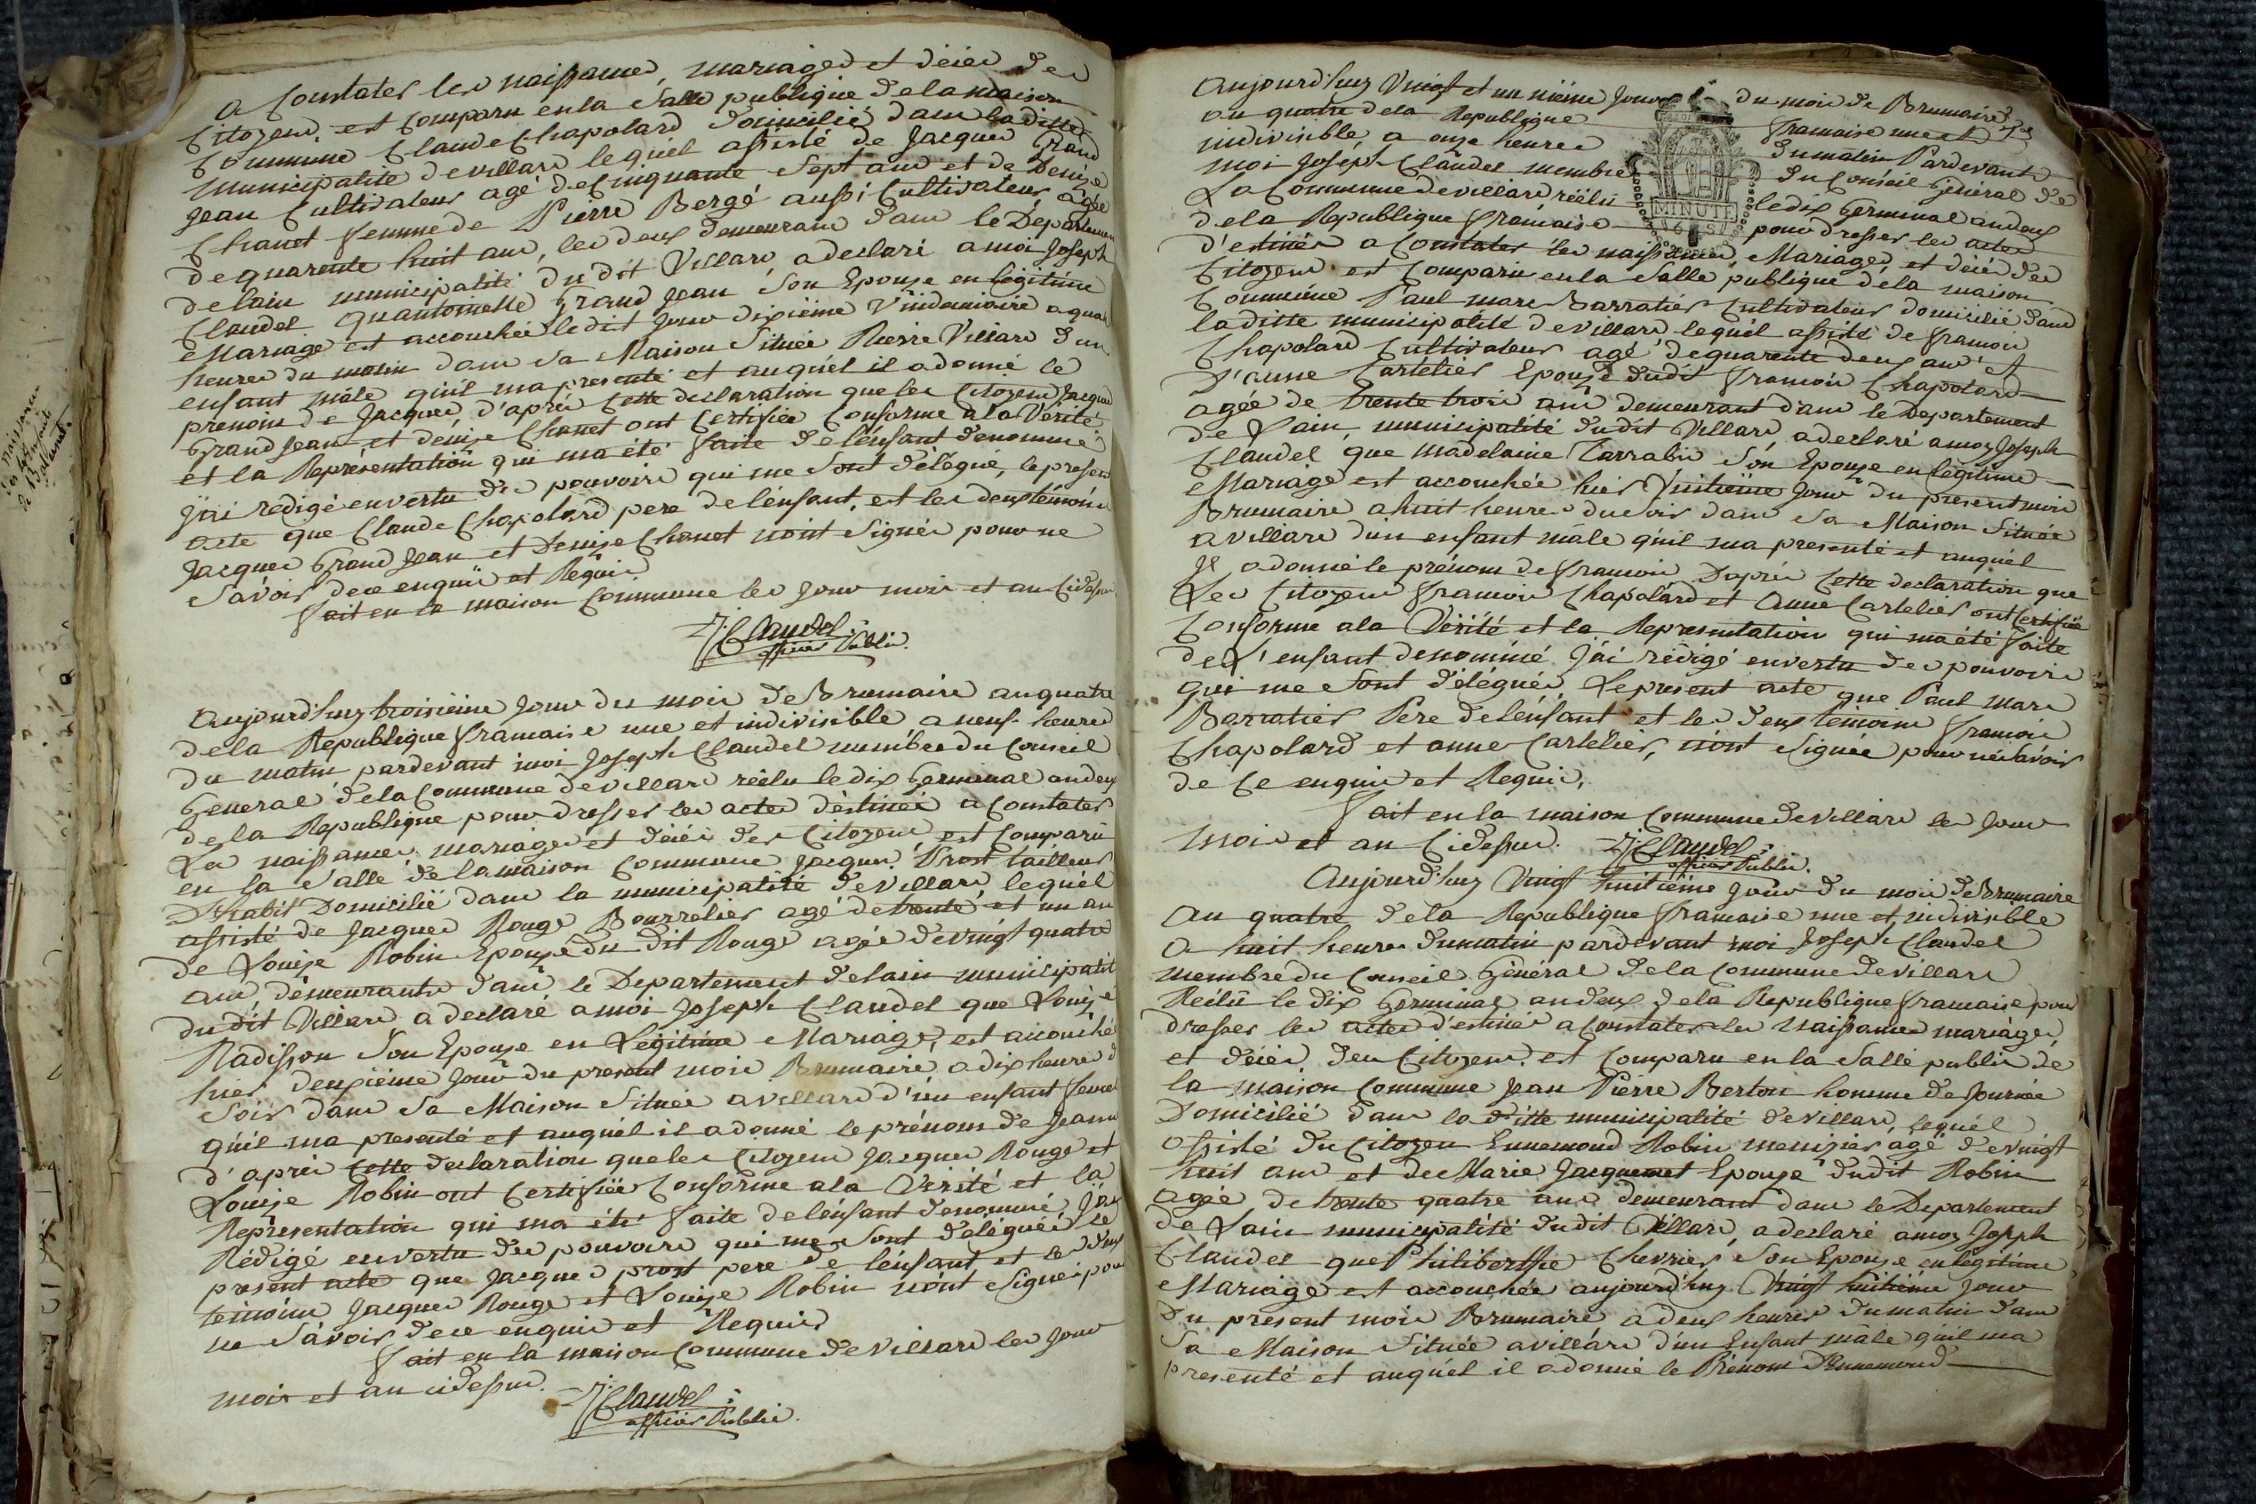 a Constater les naissances, mariages et décés des
Citoyens est Comparu en la Salle publique de la maison
Commune Claude Chapolard domicilié dans la ditte
municipalité de villars lequel assisté de Jacques Grand
Jean Cultivateur agé de Cinquante Sept ans et de Denize
Chanet femme de Pierre Bergé aussi Cultivateur, agée
de quarente huit ans, les deux demeurans dans le Departement
de lain municipalité du dit Villars, a declaré a moi Joseph
Claudel quantoinette Grand Jean Son Epouze en légitime
Mariage est accouchée ledit Jour dixième Vindemiaire a quatre
heures du matin dans Sa Maison Située Rierre Villars d'un
enfant mâle qu'il ma presenté et auquel il a donné le
prenom de Jacques, d'aprés Cette declaration que les Citoyens Jacques
Grand Jean et denize Chanet ont Certifiée Conforme a la Verité
et la Représentation qui ma été faite de lénfant denommé
J'ai rédigé en vertu des pouvoirs qui me Sont délégué, le present
acte que Claude Chapolard pere de lénfant, et les deux témoins
Jacques Grand Jean et Denize Chanet nont Signés pour ne
Sávoir de ce enquis et Requis
fait en la maison Commune les Jour mois et an Cidessus
J: Claudel
officier Public.
Aujourd'huy troisième Jour du mois de Brumaire an quatre
de la Republique francaise une et indivisible a neuf heures
du matin pardevant moi Joseph Claudel membre du Conseil
General de la Commune de villars réélu le dix Germinal an deux
de la Republique pour dresser les actes déstinés a Constater
La naissances mariages et décés des Citoyens, est Comparû
en la Salle de la maison Commune Jacques Prost tailleur
D'habit Domicilié dans la municipalité de Villars, lequel
assisté de Jacques Rouge Bourrelier agé de trente et un an
de Louize Robin Epouze du dit Rouge agée de vingt quatre
ans, démeurants dans le Departement de lain municipalité
du dit Villars a declaré a moi Joseph Claudel que Louize
Radisson Son Epouze en Legitime Mariage, est accouchée
hier deuxième Jour du present mois Brumaire a dix heures d
Soir dans Sa Maison Située a villars d'un enfant femel
qu'il ma presenté et auquel il a donné le prénom de Jeanne
d'aprés Cette declaration que les Citoyens Jacques Rouge et
Louize Robin ont Certifiée Conforme a la Vérité et la
Représentation qui ma été faite de lénfant denommé, Jai
Rédigé en vertu des pouvoirs qui me Sont délégués le
present acte que Jacques prost pere de lénfant et les deux
temoins Jacques Rouge et Louize Robin nónt Signés pour
ne Sávoir de ce enquis et Requis
fait en la maison Commune de villars les Jour
mois et an cidessus.
J: Claudel
officier Public.
Aujourd'huy Vingt et un nième Jour du mois de Brumaire
an quatre de la Republique francaise une et
indivisible, a onze heures du matin Pardevant
moi Joseph Claudel membre du Conseil Général de
La Commune de villars, réélu le dix Germinal an deux
de la Republique francaise pour dresser les actes
MINUTE
d'estinés a Constater les naissances, Mariages et décés des
Citoyens est Comparu en la Salle publique dé la maison
Commune Paul marc Barratier Cultivateur domicilié dans
la ditte municipalité de Villars, lequel assisté de francois
Chapolard Cultivateur agé de quarente deux ans et
D'anne Cartelier Epouze dudit francois Chapolard
agée de trente trois ans demeurant dans le Departement
de Lain, municipalité dudit Villars, a declaré a moy Joseph
Claudel que Madelaine Tarrabis Són Epouze en légitime
Mariage est accouchée hier Vintième Jour du present mois
Brumaire a huit heures du soir dans Sa Maison Située
a villars d'un enfant mâle qu'il ma presenté et auquel
Il a donné le prénom de francois D'aprés Cette declaration que
Les Citoyens francois Chapolard et Anne Cartelier ont Certifiée
Conforme a la Vérité et la Representation qui ma été faite
de L'enfant denommé J'ai rédigé en vertu des pouvoirs
qui me Sont délégués Le present acte que Paul Marc
Barratier Pere de lénfant et les deux témoins francois
Chapolard et anne Cartelier, nónt Signés pour ne Sávoir
de Ce enquis et Requis.
fait en la maison Commune de Villars les Jour
mois et an Cidessus. J: Claudel
officier Public.
Aujourd'huy Vingt huitiéme Jour du mois de Brumaire
An quatre de la Republique francaise une et indivisible
a huit heures du matin pardevant moi Joseph Claudel
membre du Conseil Général de la Commune de Villars
Réélû le dix Germinal an deux de la Republique francaise pour
dresser les actes d'estinés a Constater les Naissances mariages
et décés des Citoyens est Comparu en la Salle public de
la maison Commune Jean Pierre Berton homme de Journée
Domicilié dans la ditte municipalité de Villars, lequel
assisté du Citoyen Ennemond Robin menizier agé de vingt
huit ans et de Marie Jacquemet Epouze dudit Robin
agée de trente quatre ans demeurant dans le Departement
de Lain municipalité dudit Villars, a declaré a moy Joseph
Claudel que Philiberthe Chevrier Son Epouze en légitime
Mariage est accouchée aujourd'huy Vingt huitième Jour
Du présent mois Brumaire a deux heures du matin dans
Sa Maison Située a villars d'un Enfant mâle qu'il ma
presenté et auquel il a donné le Prénom D'Ennemond